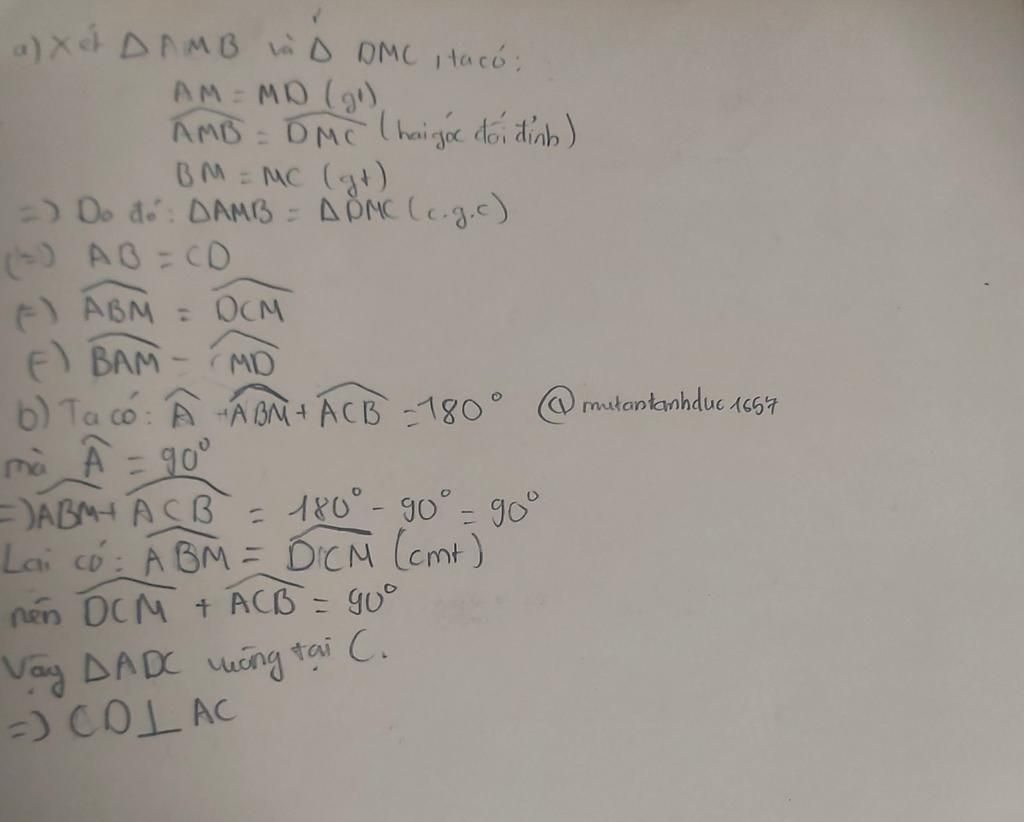 a) Xét Δ AMB và Δ DMC, ta có:
AM = MD (gt)
AMB = DMC (hai góc đối đỉnh)
BM = MC (gt)
=) Do đó: ΔAMB = ΔDMC (c.g.c)
(=) AB = CD
(=) ABM = DCM
(=) BAM = CMD
b) Ta có: A + ABM + ACB = 180° @mutantanhduc1657
mà A = 90°
=) ABM + ACB = 180° - 90° = 90°
Lại có: ABM = DCM (cmt)
nên DCM + ACB = 90°
Vậy ΔADC vuông tại C.
=) CD⊥AC